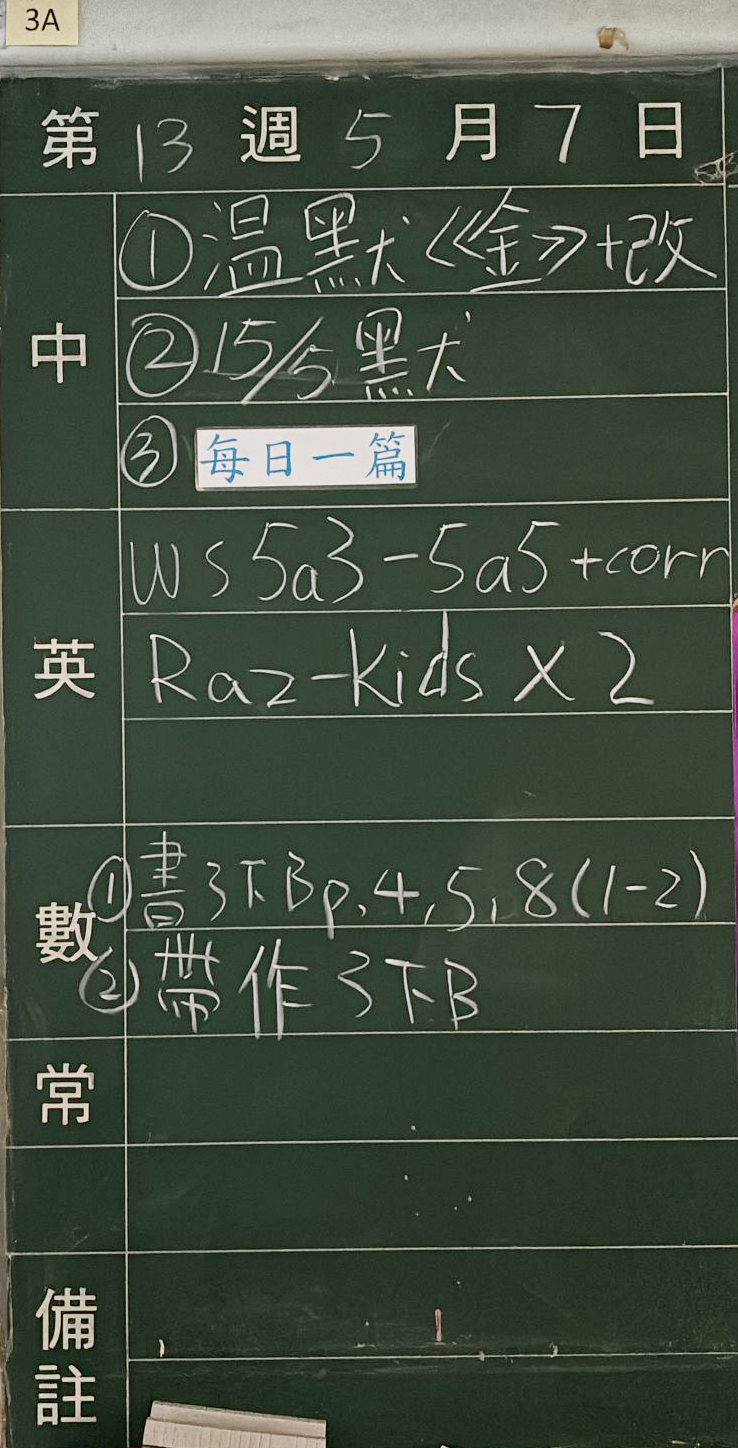 3A
第 13 週 5 月 7 日
中
① 温默《金》+改
② 15/5 默
③ 每日一篇
英
WS 5a3-5a5 +corr
Raz-kids X 2
數
① 書3下B p.4,5,8(1-2)
② 帶作3下B
常
備註